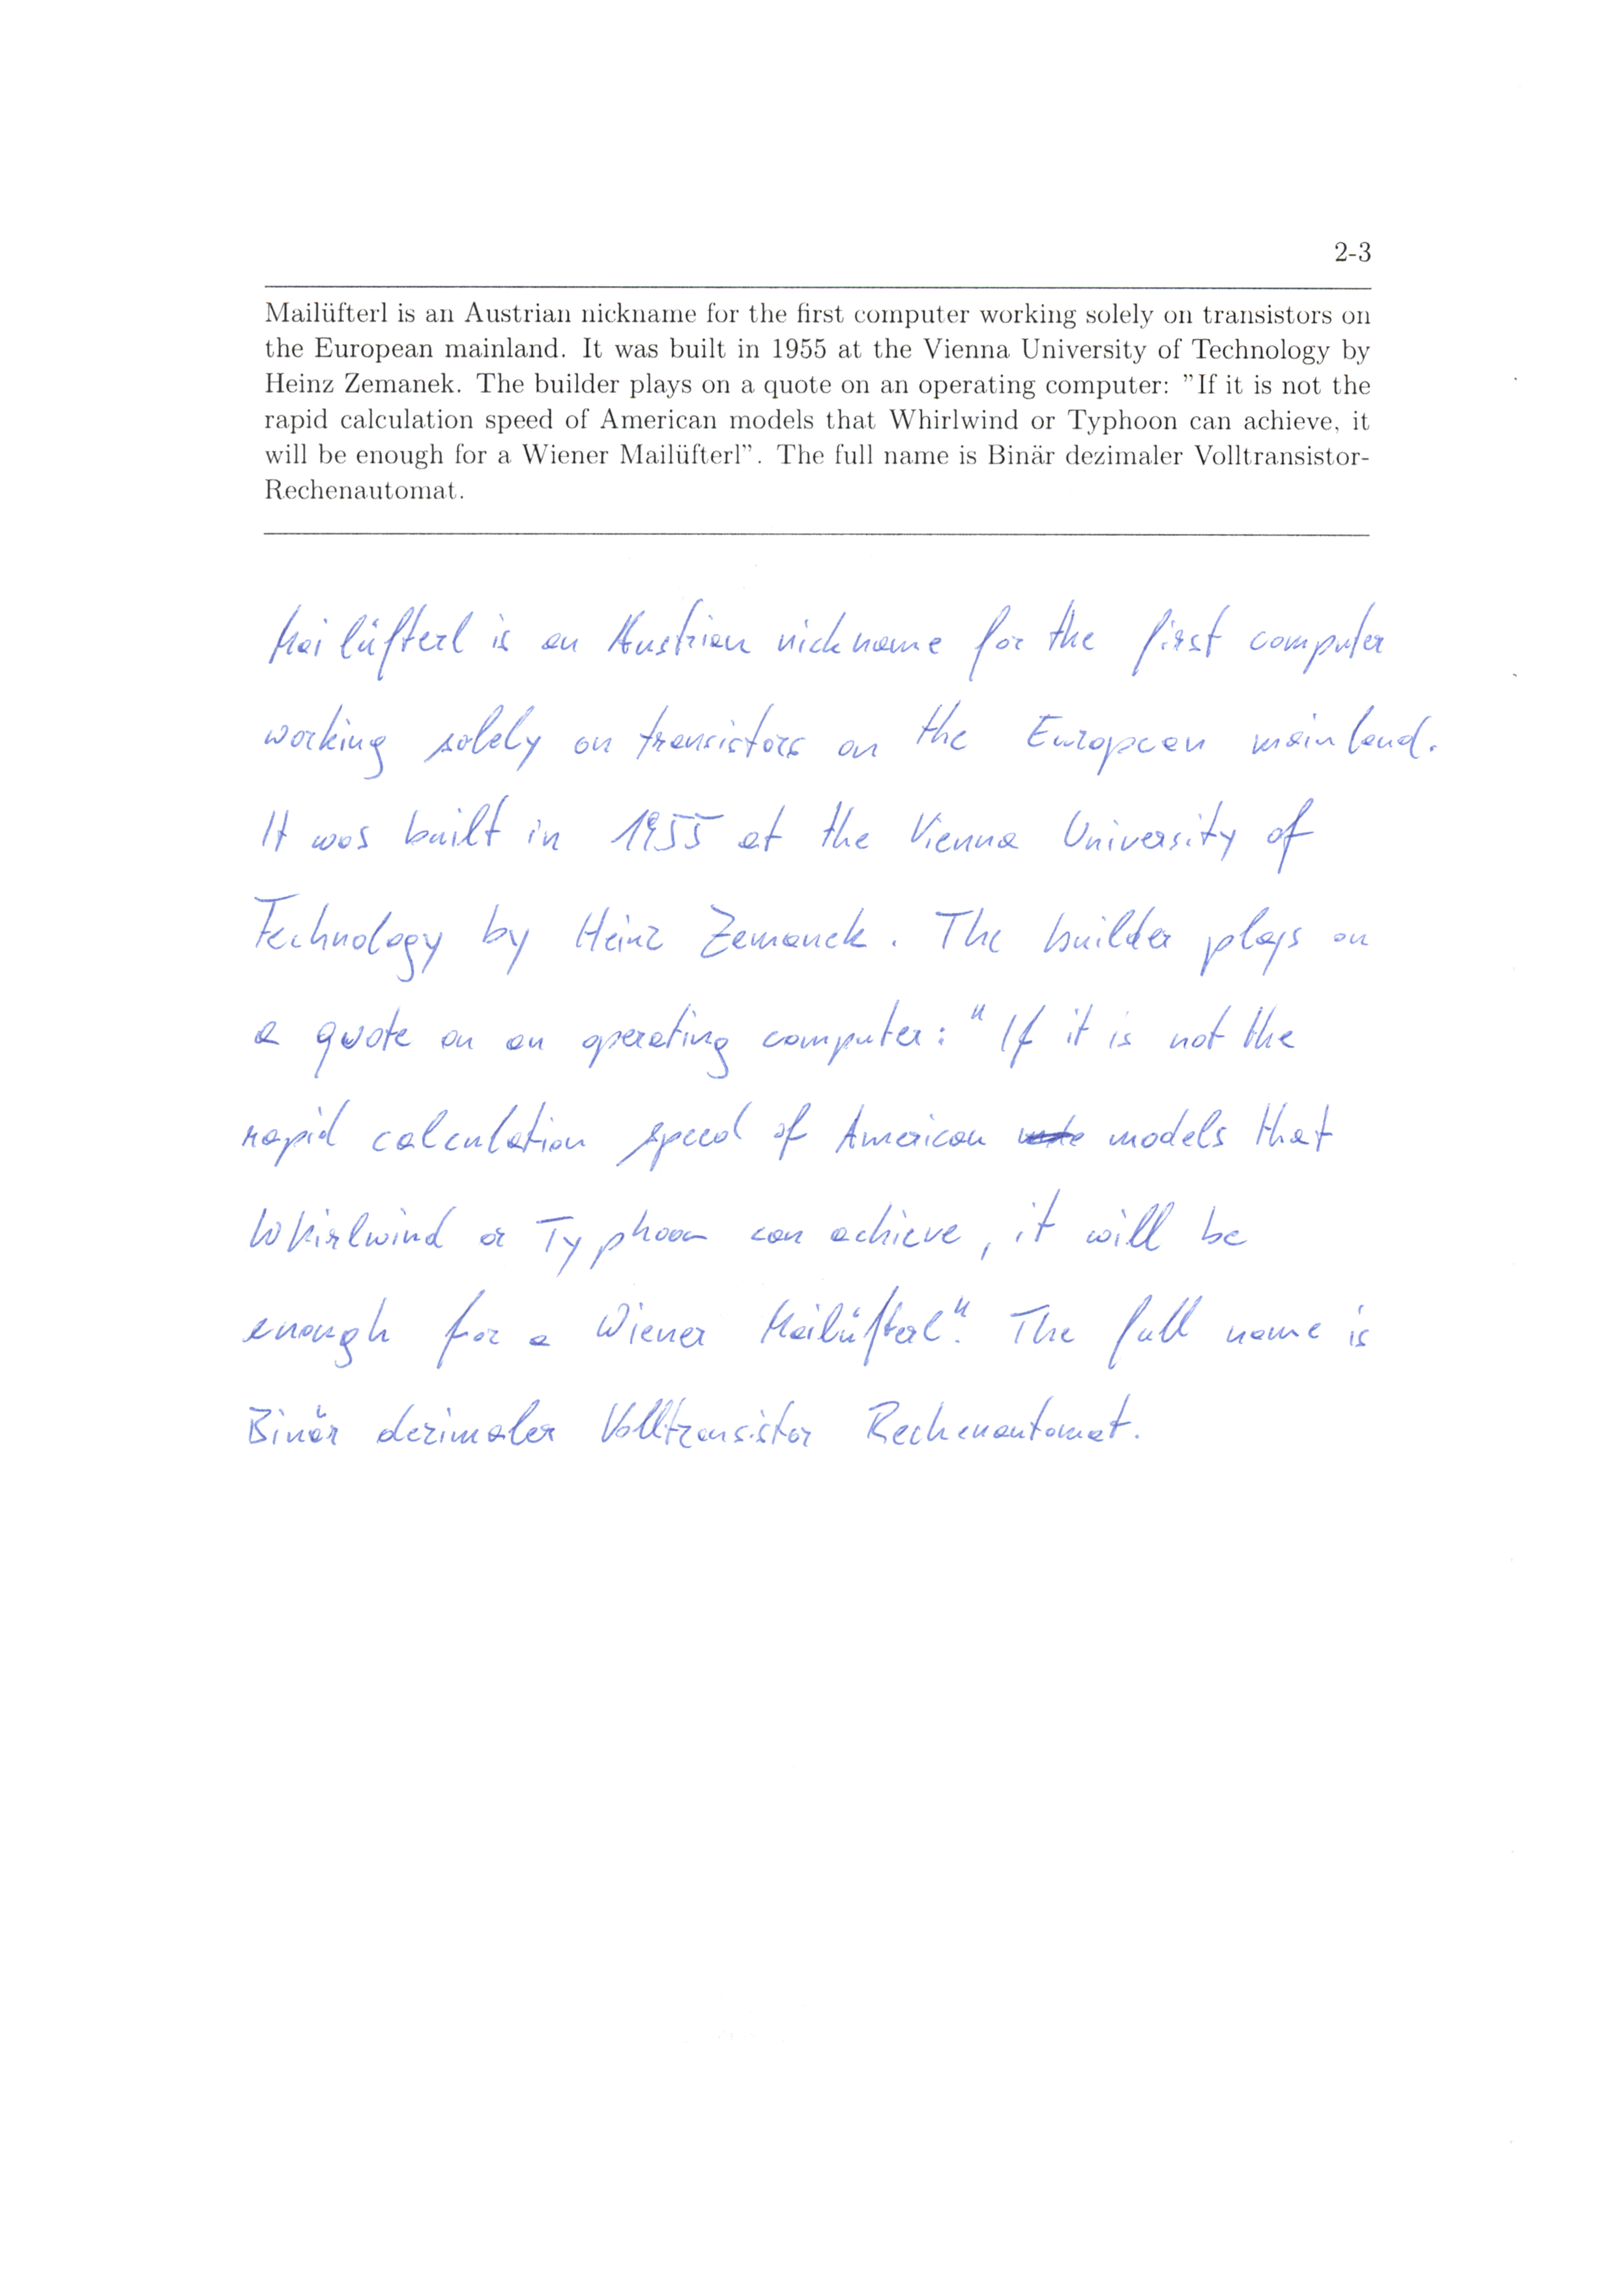 2-3
Mailüfterl is an Austrian nickname for the first computer working solely on transistors on
the European mainland. It was built in 1955 at the Vienna University of Technology by
Heinz Zemanek. The builder plays on a quote on an operating computer: "If it is not the
rapid calculation speed of American models that Whirlwind or Typhoon can achieve, it
will be enough for a Wiener Mailüfterl". The full name is Binär dezimaler Volltransistor-
Rechenautomat.
Mailüfterl is an Austrian nickname for the first computer
working solely on transistors on the European mainland.
It was built in 1955 at the Vienna University of
Technology by Heinz Zemanek. The builder plays on
a quote on an operating computer: "If it is not the
rapid calculation speed of American models that
Whirlwind or Typhoon can achieve, it will be
enough for a Wiener Mailüfterl". The full name is
Binär dezimaler Volltransistor Rechenautomat.